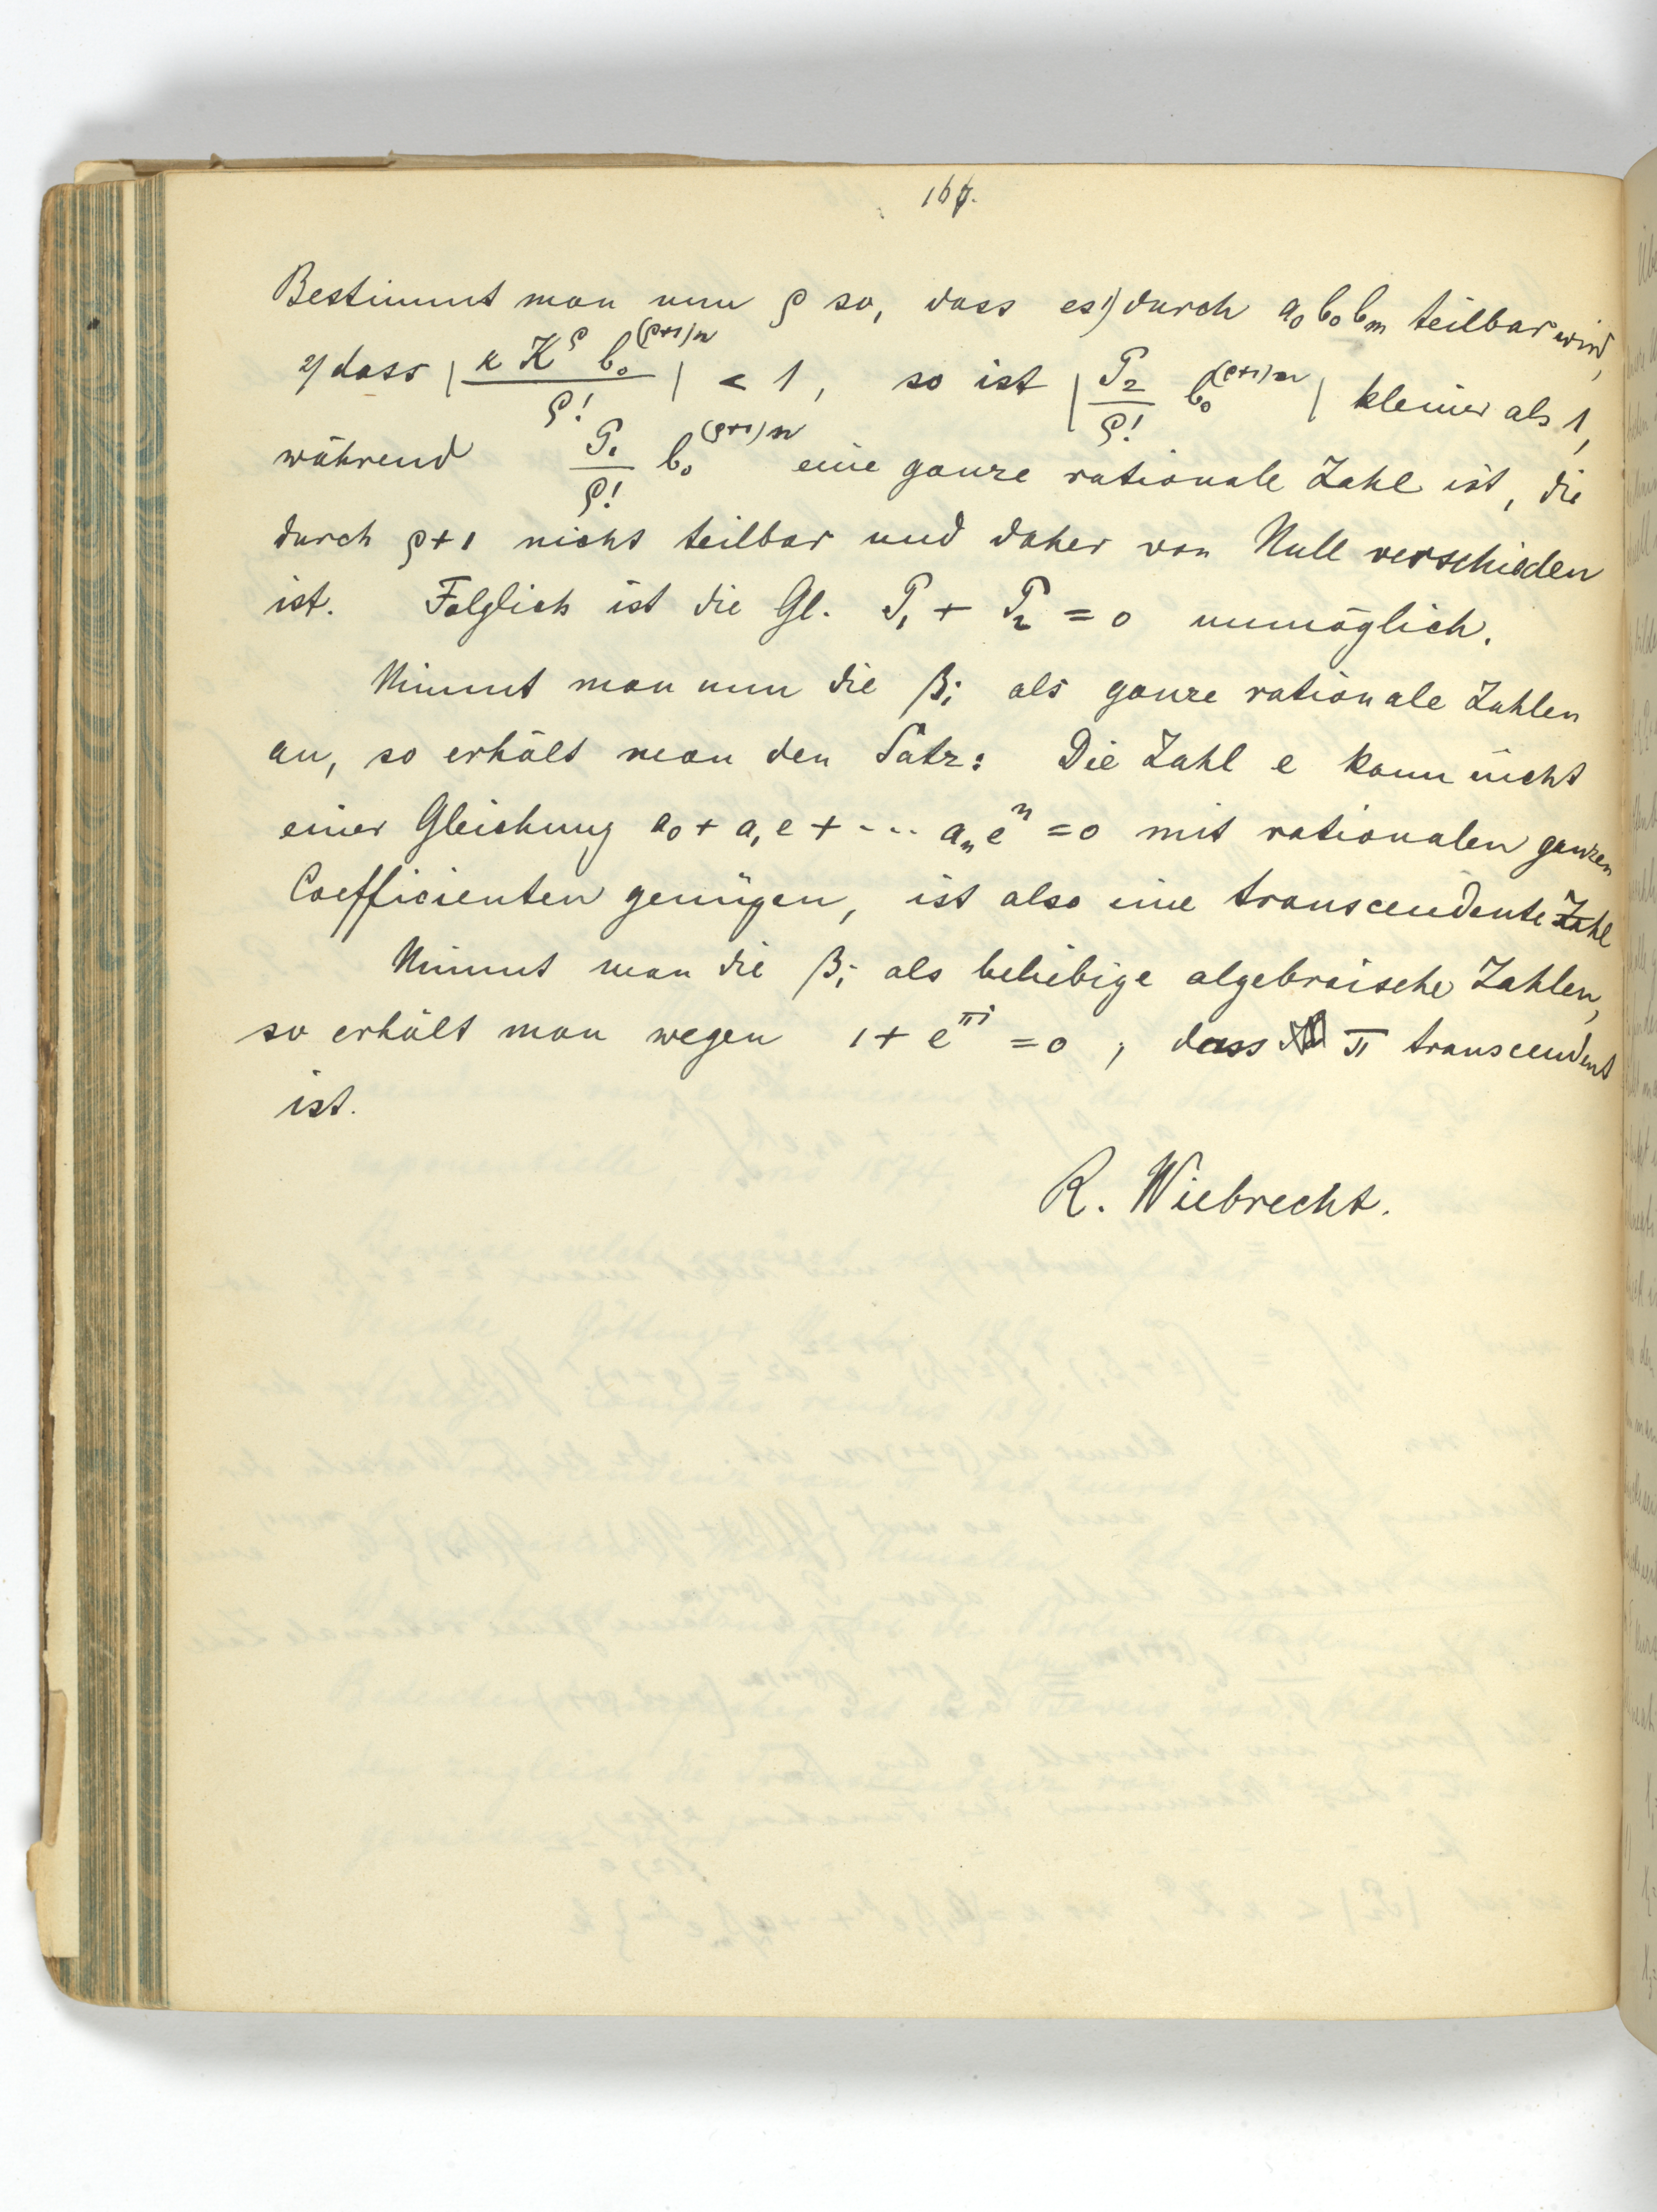 167.
Bestimmt man nun ρ so, dass es 1) durch a₀ b₀ bₘ teilbar wird,
2) dass | κ K^ρ b₀^(ρ+1)n / ρ! | < 1, so ist | P₂ / ρ! b₀^(ρ+1)n | kleiner als 1,
während P₁ / ρ! b₀^(ρ+1)n eine ganze rationale Zahl ist, die
durch ρ+1 nicht teilbar und daher von Null verschieden
ist. Folglich ist die Gl. P₁ + P₂ = 0 unmöglich.
Nimmt man nun die βᵢ als ganze rationale Zahlen
an, so erhält man den Satz: Die Zahl e kann nicht
einer Gleichung a₀ + a₁ e + ... aₙ eⁿ = 0 mit rationalen ganzen
Coefficienten genügen, ist also eine transcendente Zahl
Nimmt man die βᵢ als beliebige algebraische Zahlen,
so erhält man wegen 1 + e^πi = 0, dass π transcendent
ist.
R. Wiebrecht.